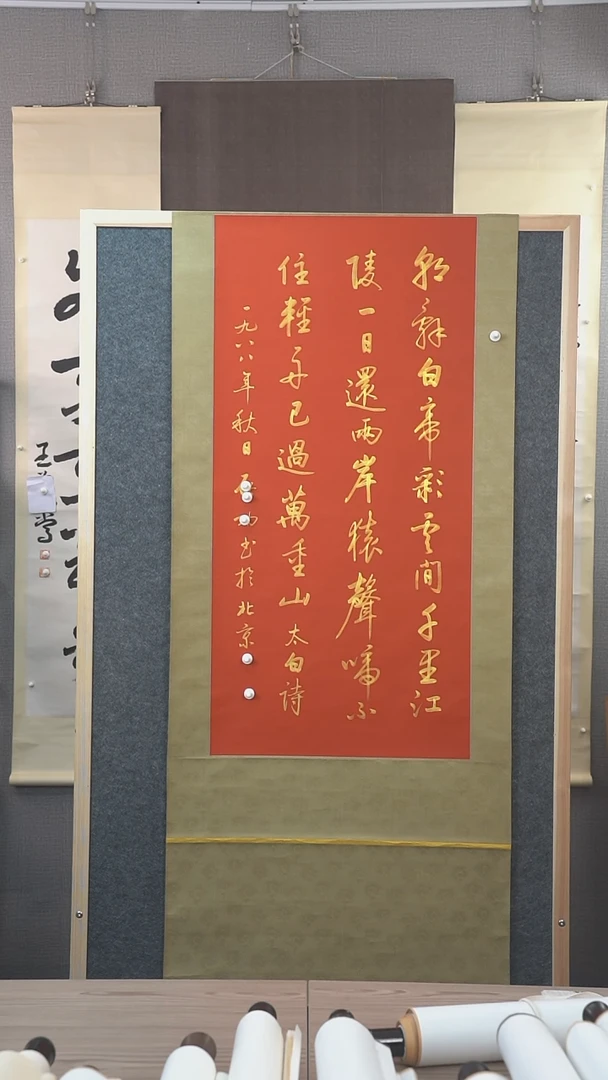 朝辭白帝彩雲間千里江
陵一日還兩岸猿聲啼不
住輕舟已過萬重山太白詩
一九八八年秋日啟功書於北京